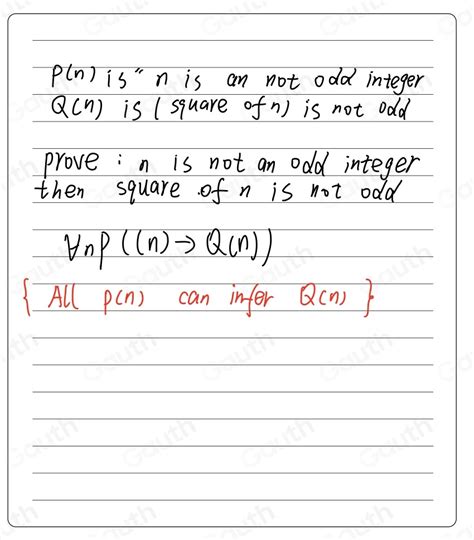 P(n) is " n is an not odd integer
Q(n) is ( square of n) is not odd
prove : n is not an odd integer
then square of n is not odd
∀n P ((n) → Q(n))
{ All p(n) can infer Q(n) }